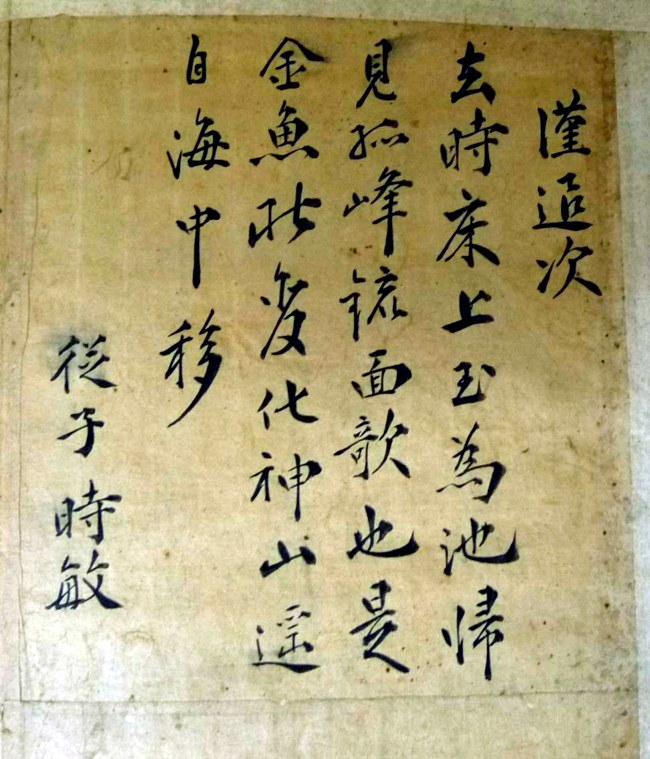 謹追次
去時床上玉為池歸
見孤峰鏡面欹也是
金魚能變化神山遥
自海中移
從子時敏